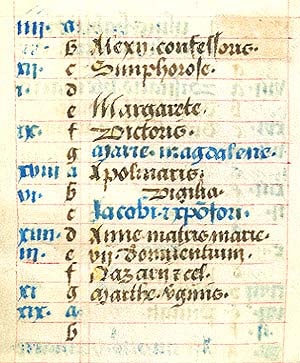 iiii a
b Alexii confessoris.
xii c Simphorose.
i d
e Margarete.
ix f Victoris.
g Marie magdalene.
xviii a Apolinaris.
vi b Vigilia.
c Jacobi x xpofori.
xiiii d Anne matris marie.
iii e vii dormientium.
f Nazarii z cel.
xi g Marthe v͛ginis.
xix a
b